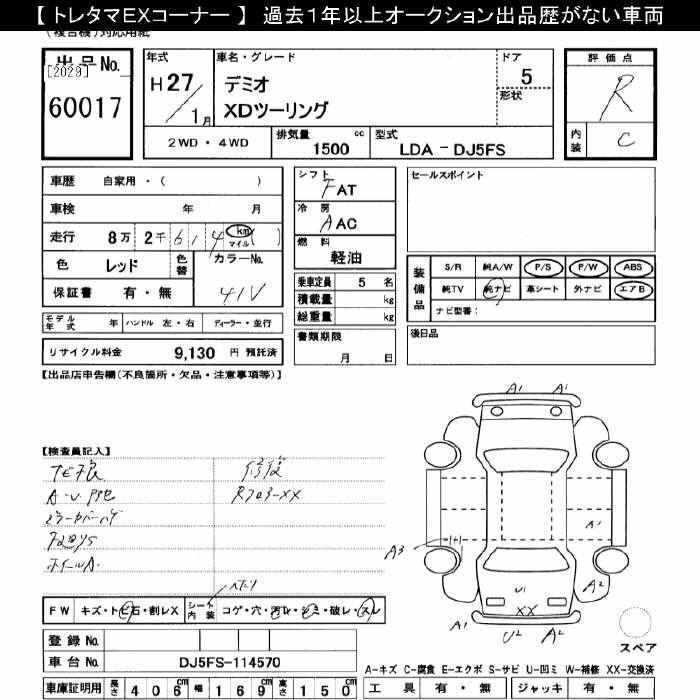 【 トレタマEXコーナー 】 過去1年以上オークション出品歴がない車両
(複合機)対応用紙
出品No.
[2029]
60017
年式
H27/1月
車名・グレード
デミオ
XDツーリング
ドア
5
形状
評価点
R
内装
C
2WD・4WD
排気量
1500 cc
型式
LDA － DJ5FS
車歴 自家用・( )
車検 年 月
走行 8万 2千 6 1 4 km マイル ( )
色 レッド 色替 カラーNo.
保証書 有・無 41V
モデル年式 年 ハンドル 左・右 ディーラー・並行
リサイクル料金 9,130 円 預託済
シフト FAT
冷房 AAC
燃料 軽油
乗車定員 5 名
積載量 kg
総重量 kg
書類期限
月 日
セールスポイント
装備品
S/R 純A/W P/S P/W ABS
純TV 純ナビ 革シート 外ナビ エアB
ナビ型番：
後日品
【出品店申告欄(不良箇所・欠品・注意事項等)】
【検査員記入】
修復
A1 A1
A1
A3
A2
U1
XX
A1 U2 A2
スペア
FW キズ・トビ石・割レX シート内装 コゲ・穴・汚レ・シミ・破レ・スレ
登録 No.
車台 No. DJ5FS-114570
車庫証明用 長さ 406cm 幅 169cm 高さ 150cm
A-キズ C-腐食 E-エクボ S-サビ U-凹ミ W-補修 XX-交換済
工具 有・無 ジャッキ 有・無